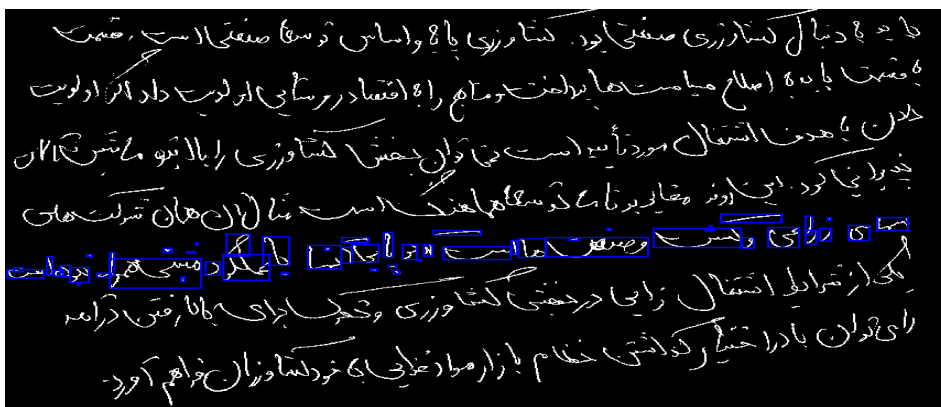 باید به دنبال کشاورزی صنعتی بود. کشاورزی پایه و اساس توسعه صنعتی است. قسمت
به قسمت باید به اصلاح سیاست‌ها پرداخت و ما هم را به اقتصاد روستایی اولویت داد اگر اولویت
دادن به هدف اشتغال مورد تأیید است نمی‌توان بخش کشاورزی را بالاتر و ماشین‌آلات
پذیرایی کرد. این روند مغایر برنامه توسعه هماهنگ است مثال آن همان شرکت‌های
های زراعی و کشت و صنعت‌ها است که با پایی آشنا با عملکرد منفی همراه بوده است
یکی از شرایط اشتغال زایی در بخش کشاورزی و تحرک برای بالا رفتن درآمد
را می‌توان با در اختیار گذاشتن خطام بازار مواد غذایی به خود کشاورزان فراهم آورد.